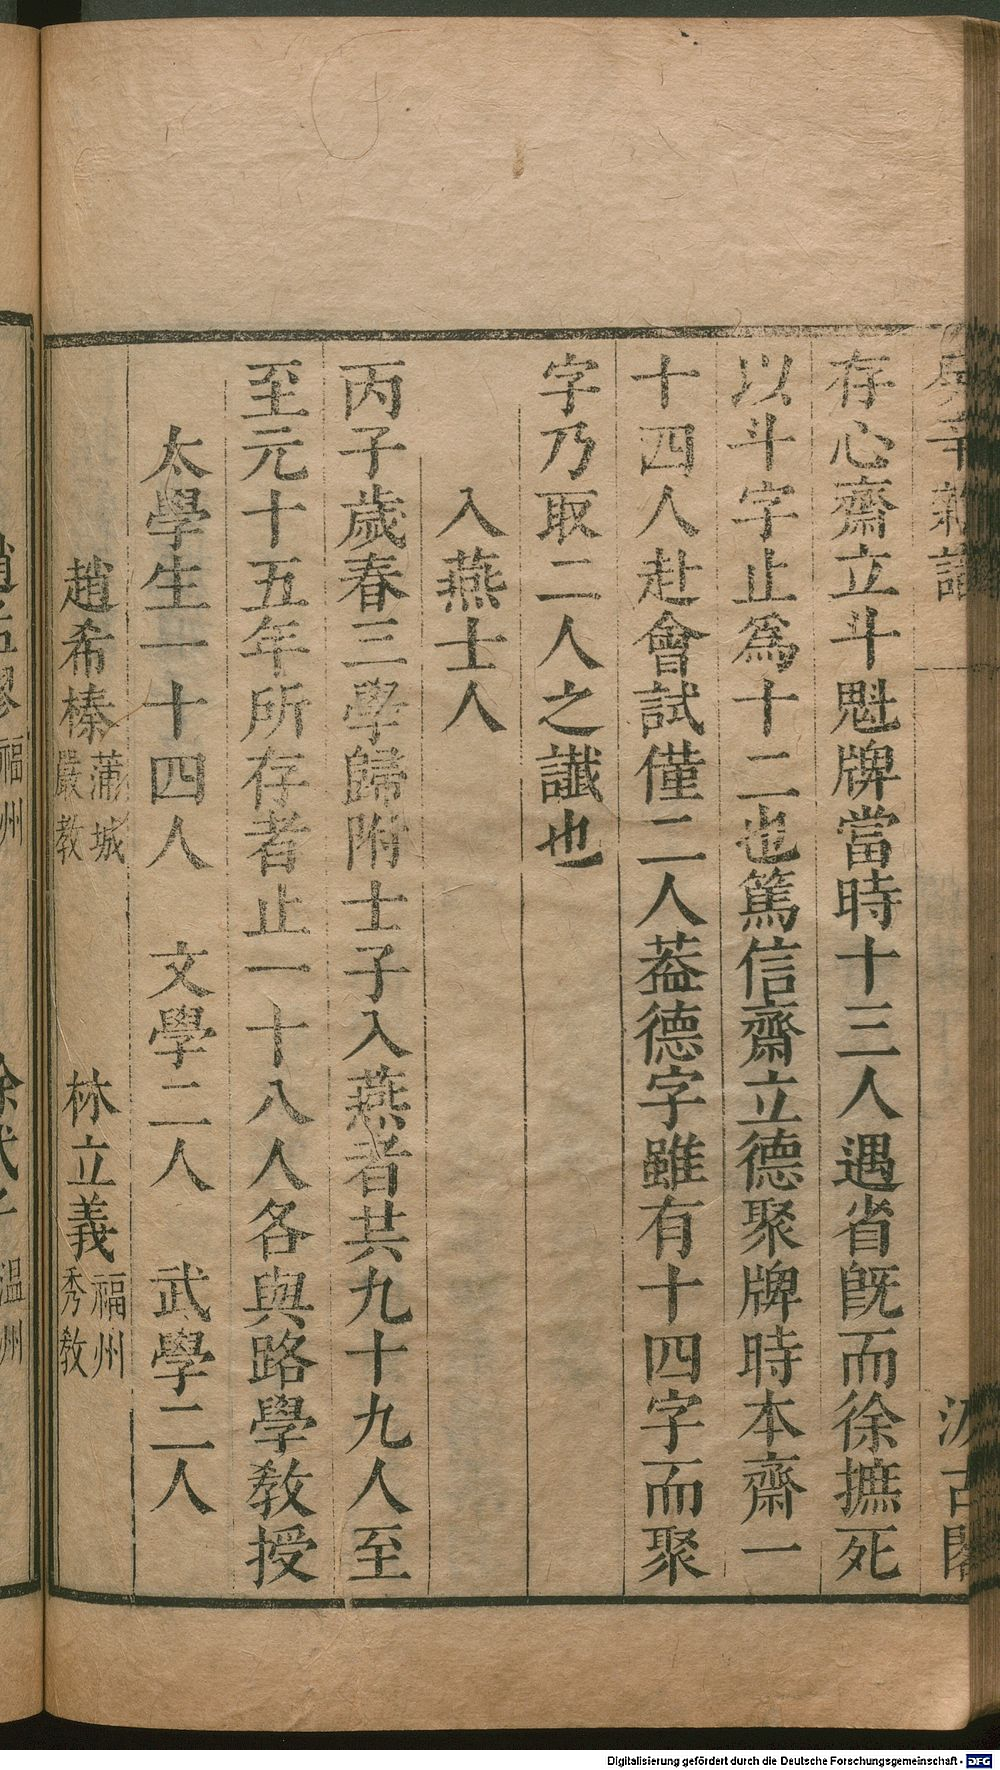 癸辛雜識
汲古閣
存心齋立斗魁牌當時十三人遇省旣而徐摭死
以斗字止爲十二也篤信齋立德聚牌時本齋一
十四人赴會試僅二人葢德字雖有十四字而聚
字乃取二人之讖也
入燕士人
丙子歲春三學歸附士子入燕者共九十九人至
至元十五年所存者止一十八人各與路學教授
太學生一十四人　文學二人　武學二人
趙希榛 蒲城 嚴教　林立義 福州 秀教
福州
温州
Digitalisierung gefördert durch die Deutsche Forschungsgemeinschaft - DFG